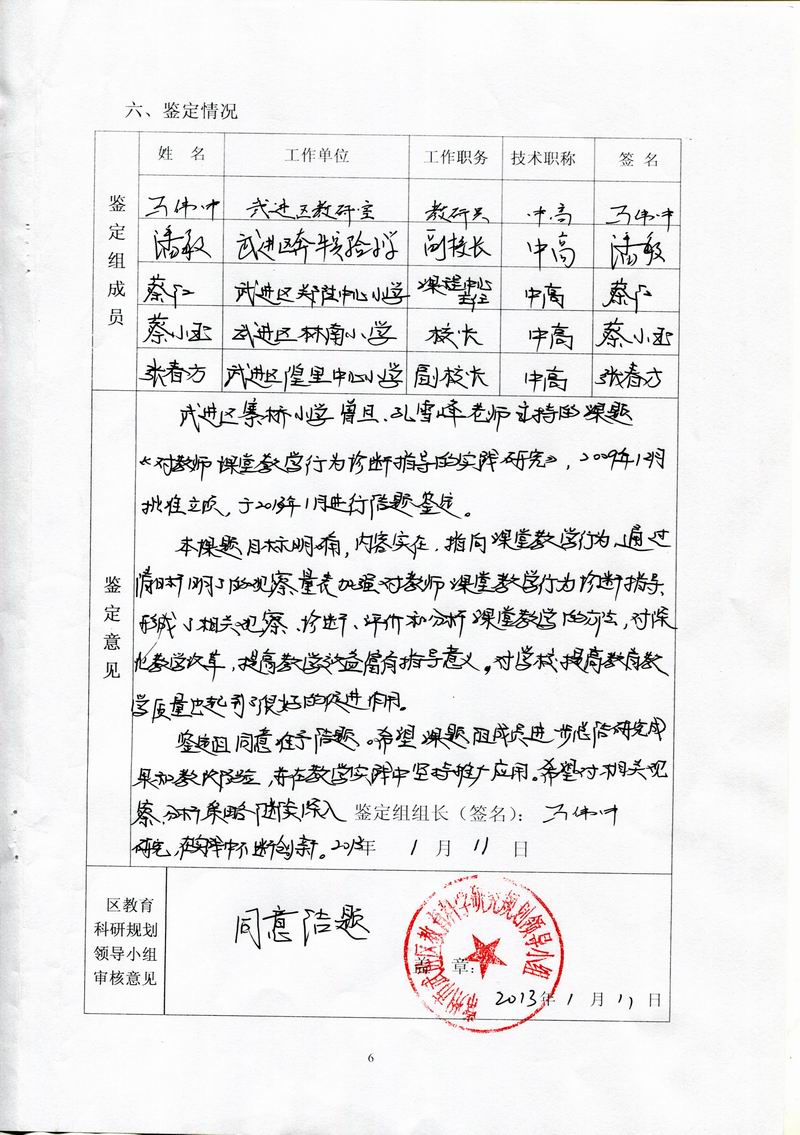 六、鉴定情况
姓 名 工作单位 工作职务 技术职称 签 名
鉴定组成员
马伟中 武进区教研室 教研员 中高 马伟中
潘敏 武进区奔牛实验小学 副校长 中高 潘敏
蔡 武进区郑陆中心小学 课程中心主任 中高 蔡
蔡小平 武进区林南小学 校长 中高 蔡小平
张春方 武进区湟里中心小学 副校长 中高 张春方
鉴定意见
武进区寨桥小学曾旦、孔雪峰老师主持的课题
《对教师课堂教学行为诊断指导的实践研究》，2009年12月
批准立项，于2013年1月进行结题鉴定。
本课题目标明确，内容实在，指向课堂教学行为，通过
清晰明了的观察量表加强对教师课堂教学行为诊断指导，
形成了相关观察、诊断、评价和分析课堂教学的方法，对深
化教学改革，提高教学效益富有指导意义。对学校提高教育教
学质量也起到了很好的促进作用。
鉴定组同意准予结题。希望课题组成员进一步总结研究成
果和教改经验，并在教学实践中坚持推广应用。希望对相关观
察、分析策略 深入 鉴定组组长（签名）： 马伟中
研究，在实践中不断创新。2013年 1 月 11 日
区教育
科研规划
领导小组
审核意见
同意结题
常州市武进区教育科学研究规划领导小组
盖 章：
2013年 1 月 11 日
6